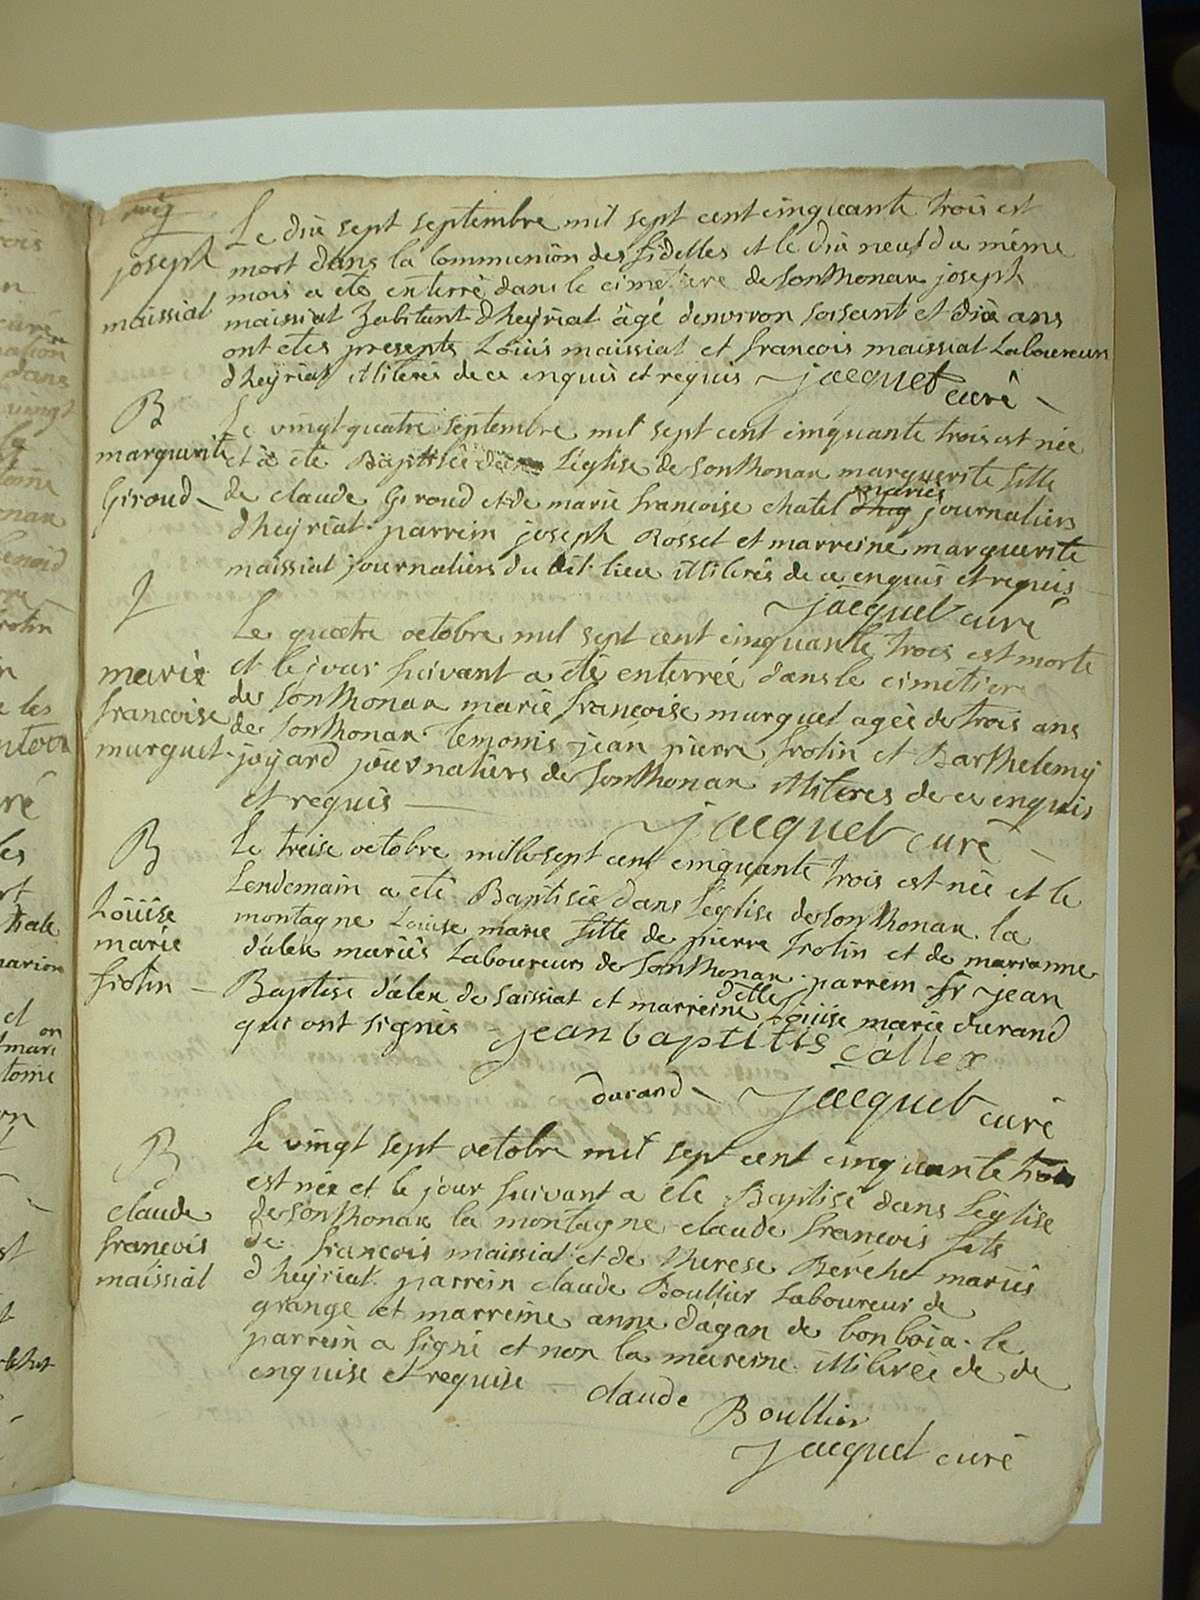 joseph
maissiat
Le dix sept septembre mil sept cent cinquante trois est
mort dans la Communion des fidelles et le dix neuf du même
mois a etés enterré dans le cimetiere de Sonthonax joseph
maissiat habitant dheyriat âgé denviron soisant et dix ans
ont etes presents Loüis maissiat et francois maissiat Laboureurs
dheyriat illiterés de ce enquis et requis jacquet
curé
B
marguerite
Giroud
Le vingt quatre septembre mil sept cent cinquante trois est née
et a eté Baptisée dans Léglise de Sonthonax marguerite fille
de claude Giroud et de marie francoise chatel mariés journaliers
dheyriat parrein joseph Rosset et marreine marguerite
maissiat journaliers du dit lieu illiterés de ce enquis et requis
jacquet curé
marie
francoise
murguet
Le quatre octobre mil sept cent cinquante trois est morte
et le jour suivant a eté enterrée dans le cimetiere
de Sonthonax marie françoise murguet agée de trois ans
de Sonthonax temoins jean pierre frotin et Barthelemy
joyard journaliers de Sonthonax illiteres de ce enquis
et requis
jacquet curé
B
Loüise
marie
frotin
Le treise octobre mille sept cent cinquante trois est née et le
Lendemain a eté Baptisée dans Léglise de Sonthonax la
montagne Louise marie fille de pierre frotin et de marianne
dalex mariés Laboureurs de Sonthonax parrein jean
Baptise dalex de Saissiat et marreine delle Loüise marie durand
qui ont signés jean baptitis dallex
durand jacquet curé
B
claude
francois
maissiat
Le vingt sept octobre mil sept cent cinquante trois
est née et le jour suivant a eté Baptisé dans Léglise
de Sonthonax la montagne claude françois fils
de francois maissiat et de therese Berchet mariés
dheyriat parrein claude Boullier Laboureur de
grange et marreine anne dagan de bonboia le
parrein a signé et non la marreine illiterée de de
enquise et requise claude Boullier
jacquet curé